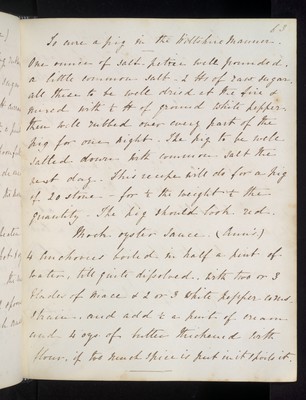 63
To cure a pig in the Wiltshire Manner.
One ounce of Salt-petre well pounded,
a little common salt - 2 lbs of raw sugar
all three to be well dried at the fire &
mixed with ½ lb of ground white pepper
then well rubbed over every part of the
pig for one night. The pig to be well
salted down with common salt the
next day. This receipe will do for a pig
of 20 stone - for ½ the weight ½ the
quantity - The pig should look red.
Mock oyster Sauce. (Ann's)
4 Anchovies boiled in half a pint of
water, till quite dissolved, with two or 3
blades of mace & 2 or 3 white pepper corns.
Strain, and add ½ a pint of cream
and 4 ozs of butter thickened with
flour, if too much spice is put in it spoils it.